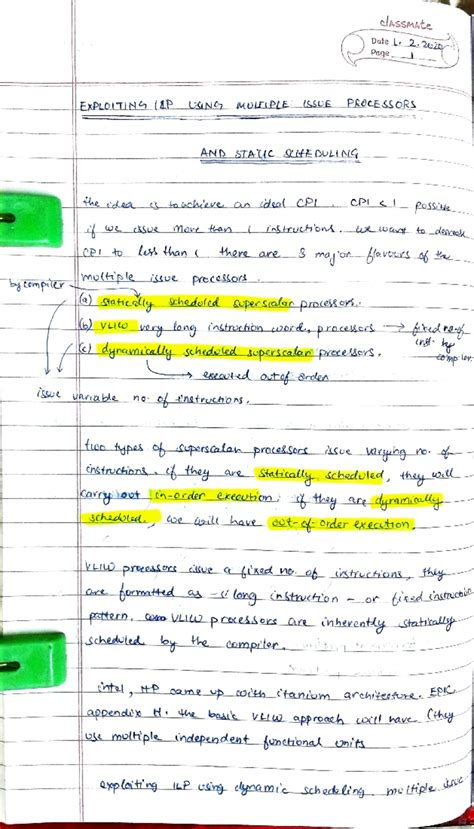 classmate
Date 1. 2. 2020
Page 1
EXPLOITING ILP USING MULTIPLE ISSUE PROCESSORS
AND STATIC SCHEDULING
the idea is to achieve an ideal CPI. CPI < 1 possible
if we issue more than 1 instructions. we want to
CPI to less than 1 there are 3 major flavours of the
multiple issue processors.
by compiler
(a) statically scheduled superscalar processors.
(b) VLIW very long instruction word, processors → fixed no. of
inst. by
(c) dynamically scheduled superscalar processors.
compiler.
→ executed out of order
issue variable no. of instructions.
two types of superscalar processors issue varying no. of
instructions. if they are statically scheduled, they will
carry out in-order execution. if they are dynamically
scheduled. we will have out-of-order execution.
VLIW processors issue a fixed no. of instructions, they
are formatted as long instruction - or fixed instruction
pattern. VLIW processors are inherently statically
scheduled by the compiler.
intel, HP came up with itanium architecture. EPIC
appendix H. the basic VLIW approach will have (they
use multiple independent functional units
exploiting ILP using dynamic scheduling, multiple issue